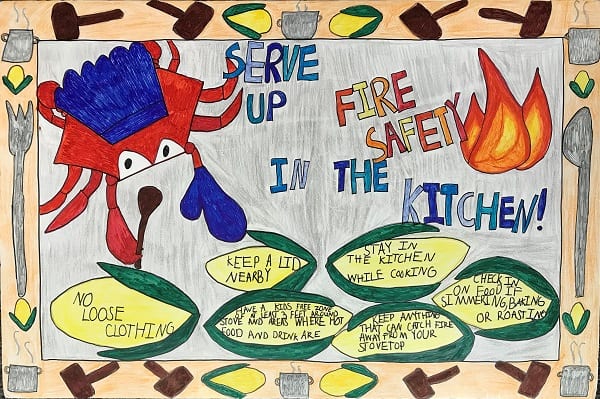 SERVE
UP
FIRE
SAFETY
IN THE
KITCHEN!
KEEP A LID
NEARBY
STAY IN
THE KITCHEN
WHILE COOKING
NO
LOOSE
CLOTHING
HAVE A KIDS FREE ZONE
OF AT LEAST 3 FEET AROUND
STOVE AND AREAS WHERE HOT
FOOD AND DRINK ARE
KEEP ANYTHING
THAT CAN CATCH FIRE
AWAY FROM YOUR
STOVETOP
CHECK IN
ON FOOD IF
SIMMERLING, BAKING
OR ROASTING